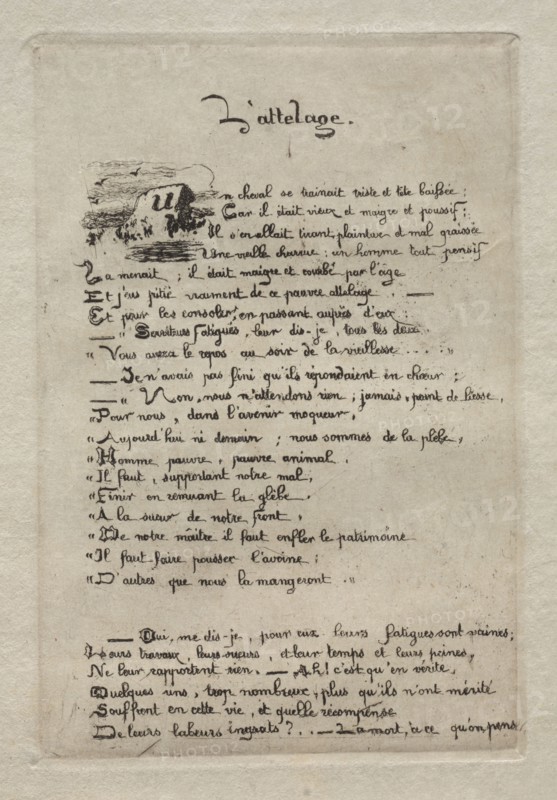 L'attelage.
Un cheval se trainait triste et tête baissée ;
Car il était vieux et maigre et poussif ;
Il s'en allait tirant, plaintive et mal graissée
Une vieille charrue : un homme tout pensif
La menait ; il était maigre et courbé par l'âge
Et j'eus pitié vraiment de ce pauvre attelage . —
Et pour les consoler, en passant auprès d'eux :
— " Serviteurs fatigués, leur dis-je, tous les deux
" Vous aurez le repos au soir de la vieillesse .... "
— Je n'avais pas fini qu'ils répondaient en chœur ;
— " Non, nous n'attendons rien ; jamais, point de liesse,
" Pour nous, dans l'avenir moqueur,
" Aujourd'hui ni demain ; nous sommes de la plèbe,
" Homme pauvre, pauvre animal,
" Il faut, supportant notre mal,
" Finir en remuant la glèbe,
" A la sueur de notre front,
" De notre maître il faut enfler le patrimoine
" Il faut faire pousser l'avoine ;
" D'autres que nous la mangeront ."
— Oui, me dis-je, pour eux leurs fatigues sont vaines ;
Leurs travaux, leurs sueurs, et leur temps et leurs peines,
Ne leur rapportent rien. — Ah! c'est qu'en vérité,
Quelques uns, trop nombreux, plus qu'ils n'ont mérité
Souffrent en cette vie, et quelle récompense
De leurs labeurs ingrats ? .. — La mort, à ce qu'on pense
PHOTO12